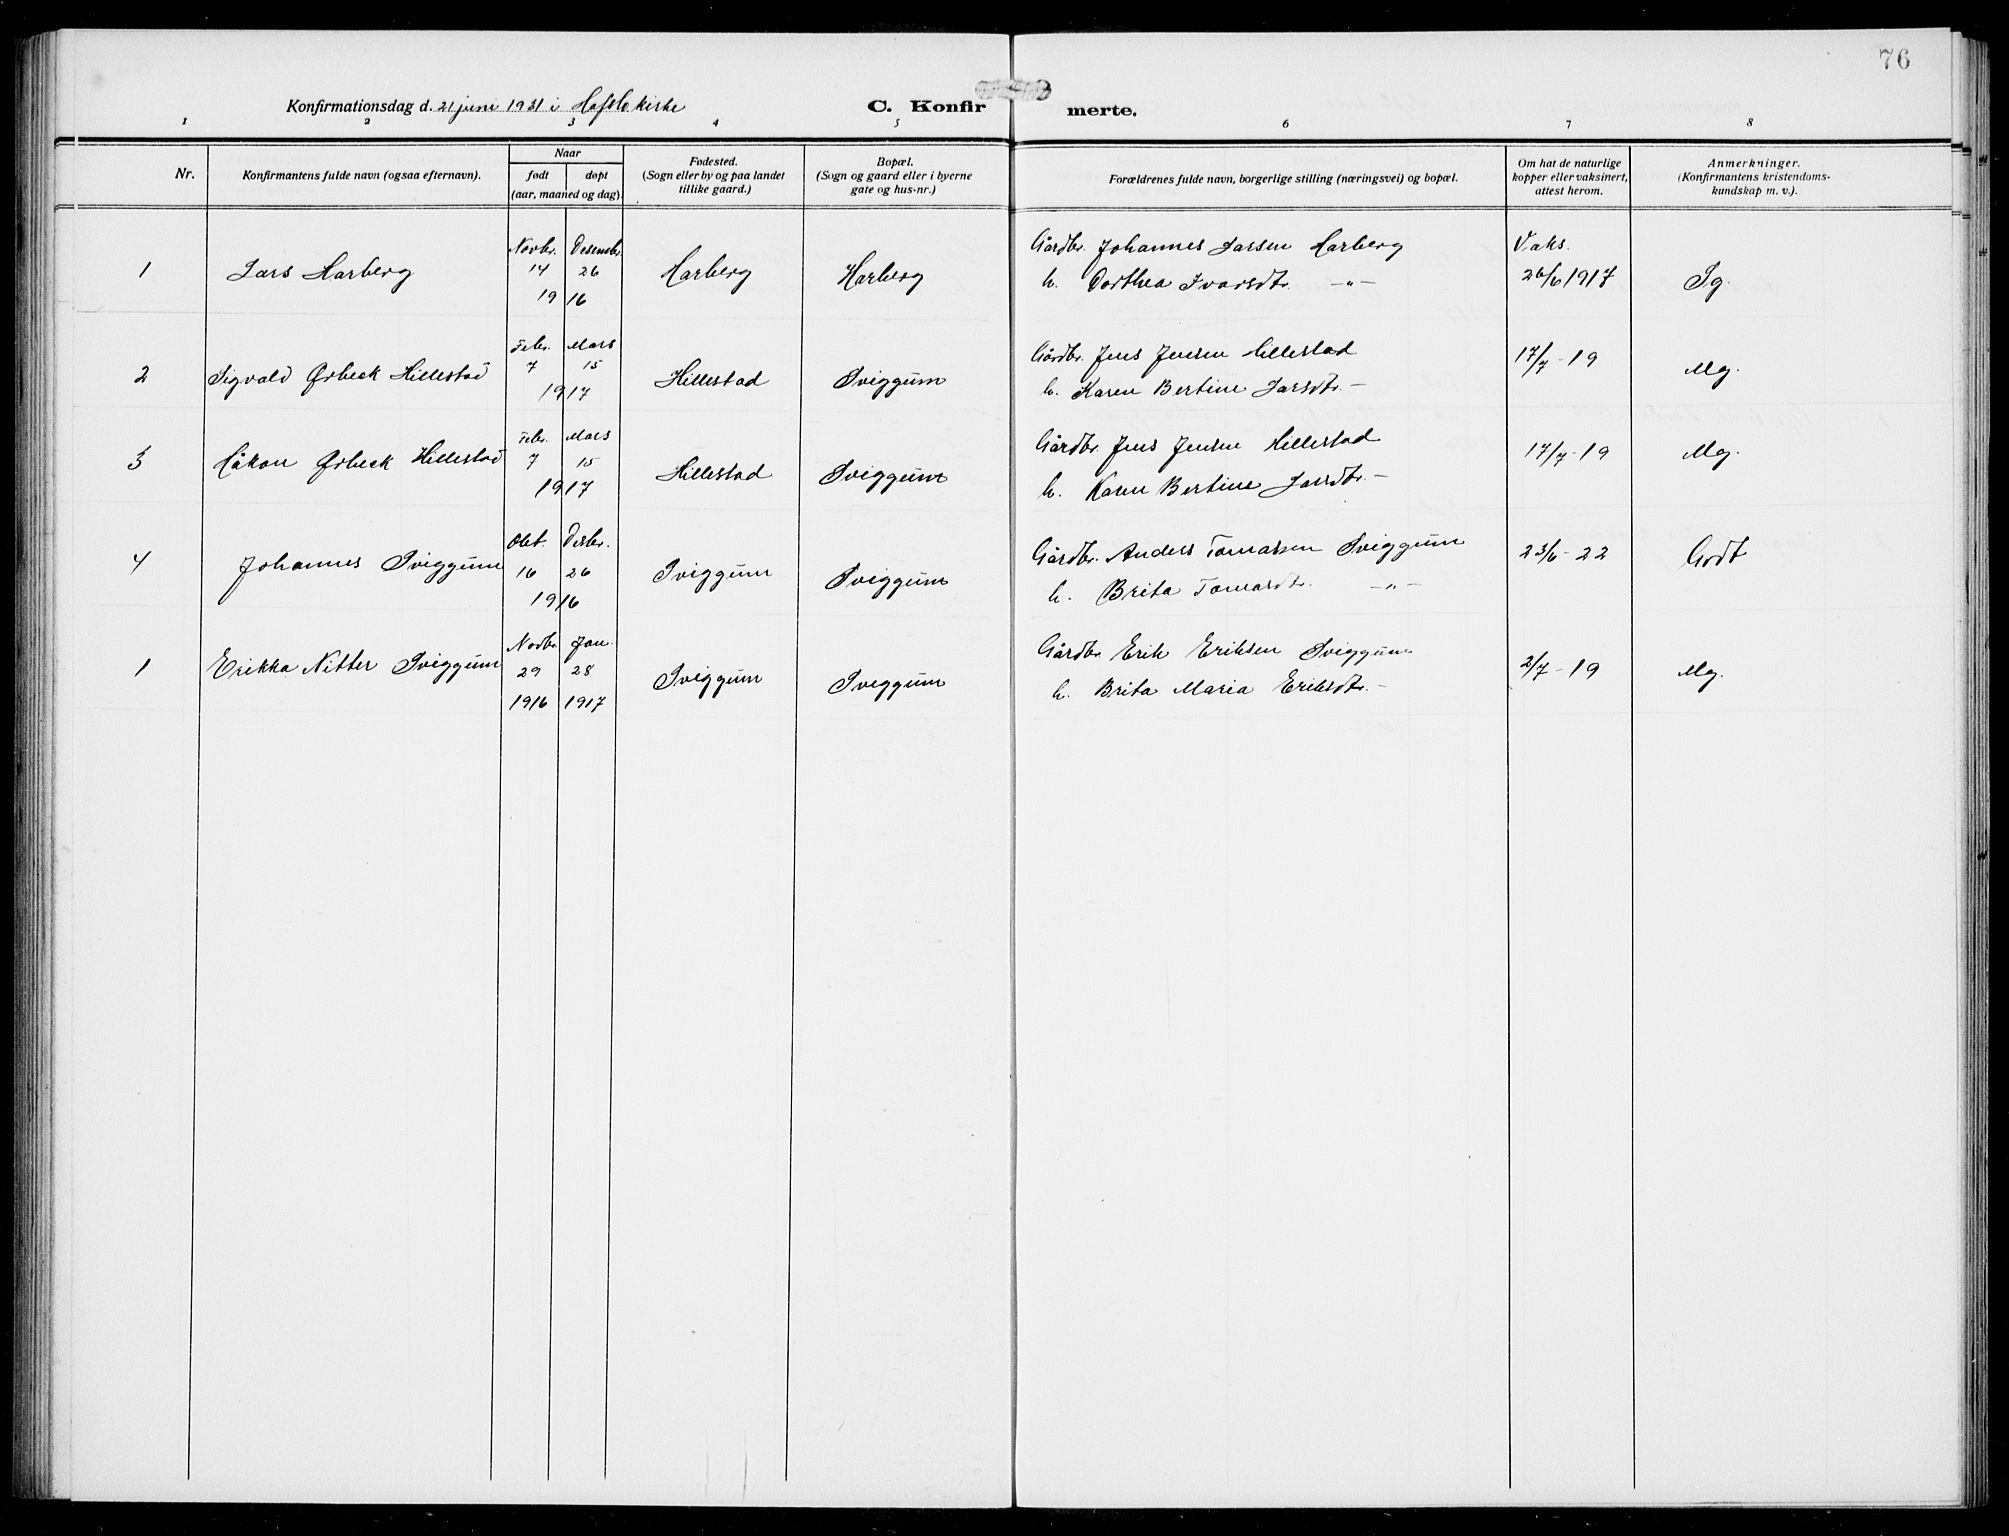 76
Konfirmationsdag d. 21 juni 1931 i Hafslo kirke
C. Konfirmerte.
1 2 3 4 5 6 7 8
Nr.
Konfirmantens fulde navn (ogsaa efternavn).
Naar
født døpt
(aar, maaned og dag).
Fødested.
(Sogn eller by og paa landet
tillike gaard.)
Bopæl.
(Sogn og gaard eller i byerne
gate og hus-nr.)
Forældrenes fulde navn, borgerlige stilling (næringsvei) og bopæl.
Om hat de naturlige
kopper eller vaksinert,
attest herom.
Anmerkninger.
(Konfirmantens kristendoms-
kundskap m. v.).
Novbr. Desembr. Gårdbr. Johannes Larsen Harberg Vaks.
1 Lars Harberg 14 26 Harberg Harberg h. Dorthea Ivarsdtr. -"- 26/6 1917 Sg.
1916
Febr. Mars Gårdbr. Jens Jensen Hillestad 17/7-19
2 Sigvald Ørbeck Hillestad 7 15 Hillestad Sviggum h. Karen Bertine Larsdtr. - Mg.
1917
Febr. Mars Gårdbr. Jens Jensen Hillestad 17/7-19 Mg.
3 Håkon Ørbeck Hillestad 7 15 Hillestad Sviggum h. Karen Bertine Larsdtr. -
1917
Okt. Desbr. Gårdbr. Anders Tomassen Sviggum 23/6-22 Godt
4 Johannes Sviggum 16 26 Sviggum Sviggum h. Brita Tomasdtr. -"-
1916
Novbr. Jan. Gårdbr. Erik Eriksen Sviggum
1 Erikka Nitter Sviggum 29 28 Sviggum Sviggum h. Brita Maria Eriksdtr. - 2/7-19 Mg.
1916 1917